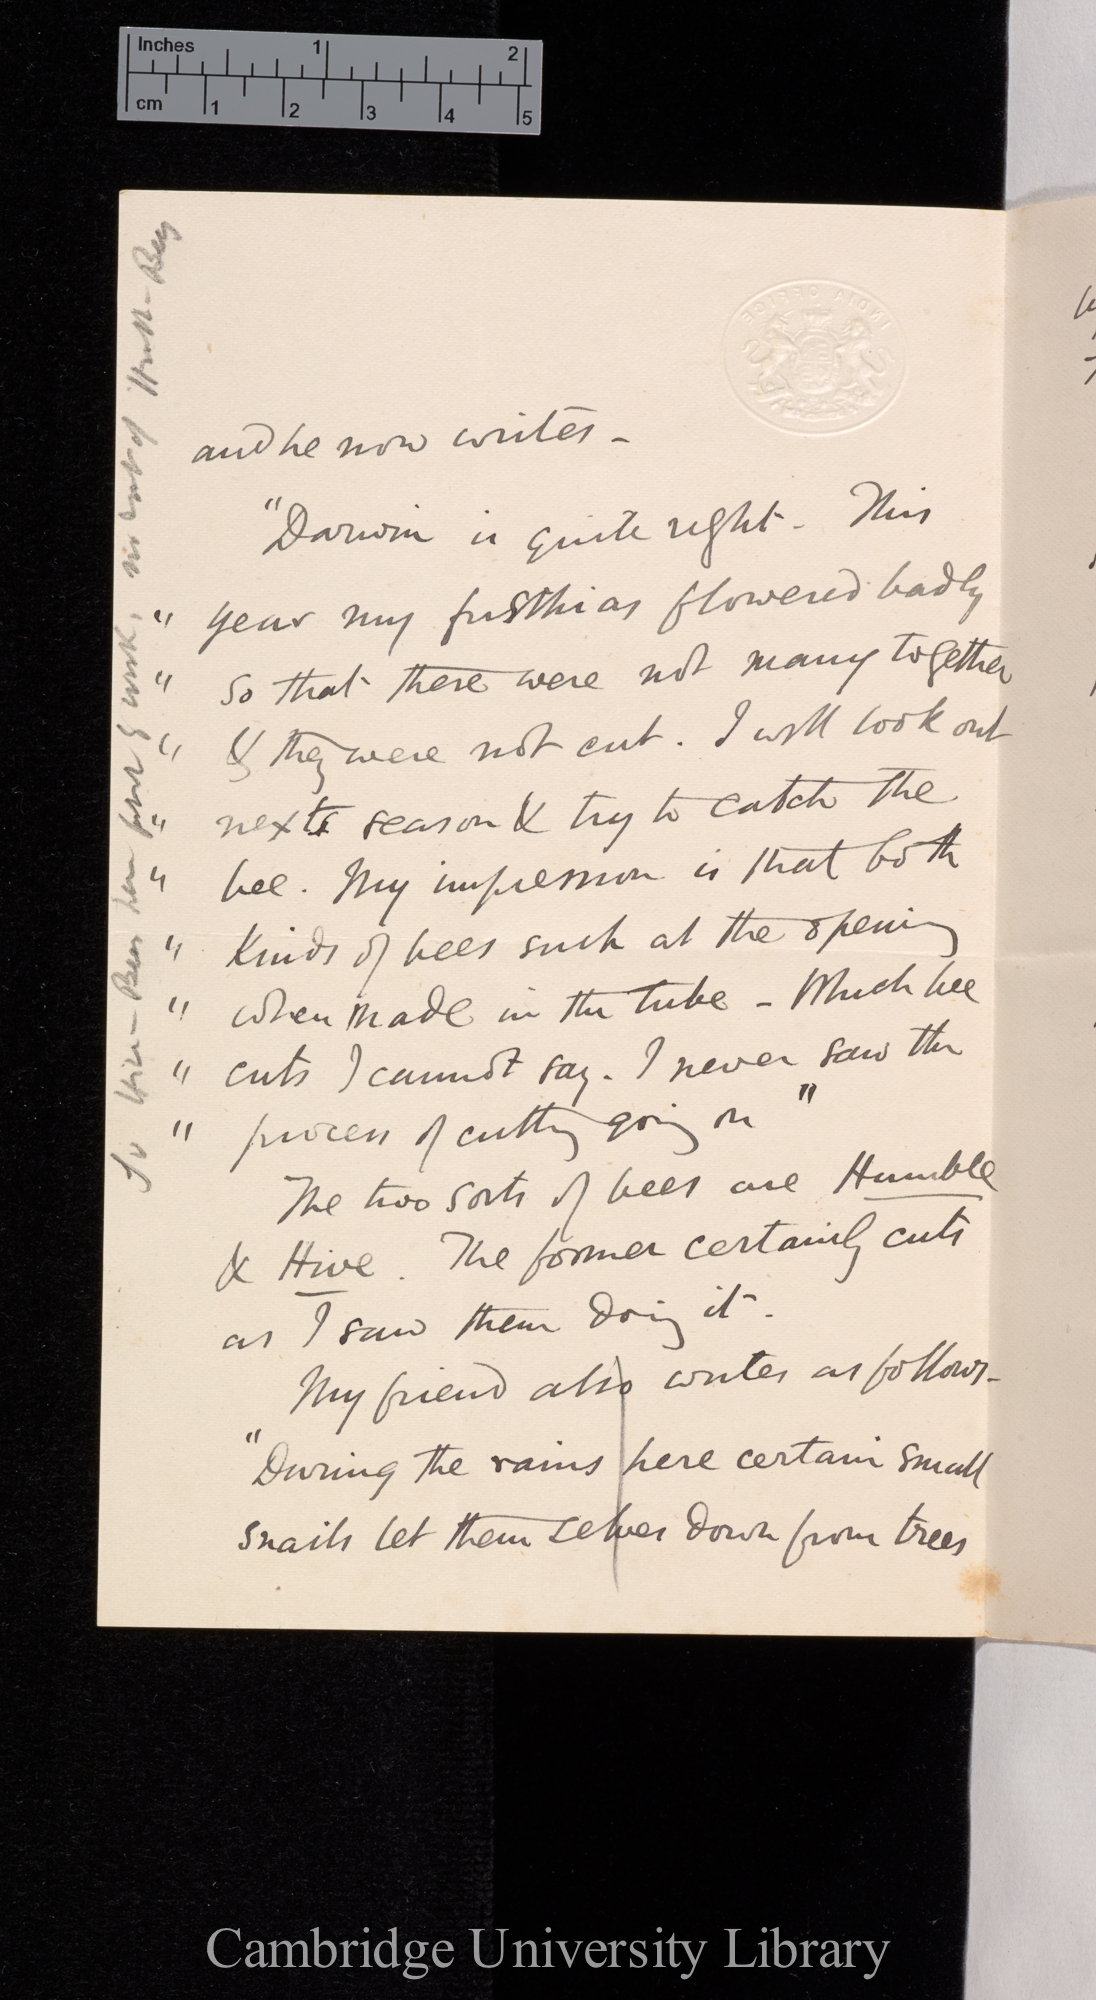 Inches 1 2
cm 1 2 3 4 5
INDIA OFFICE
and he now writes -
"Darwin is quite right - This
" year my fusthias flowered badly
" so that there were not many together
" & they were not cut. I will look out
" next season & try to catch the
" bee. My impression is that both
" Kinds of bees suck at the opening
" when made in the tube - Which bee
" cuts I cannot say. I never saw the
" process of cutting going on "
The two sorts of bees are Humble
& Hive. The former certainly cuts
as I saw them doing it -
My friend also writes as follows -
"During the rains here certain small
snails let themselves down from trees
Hive - Bees here & work, of Humble - Bees
Cambridge University Library